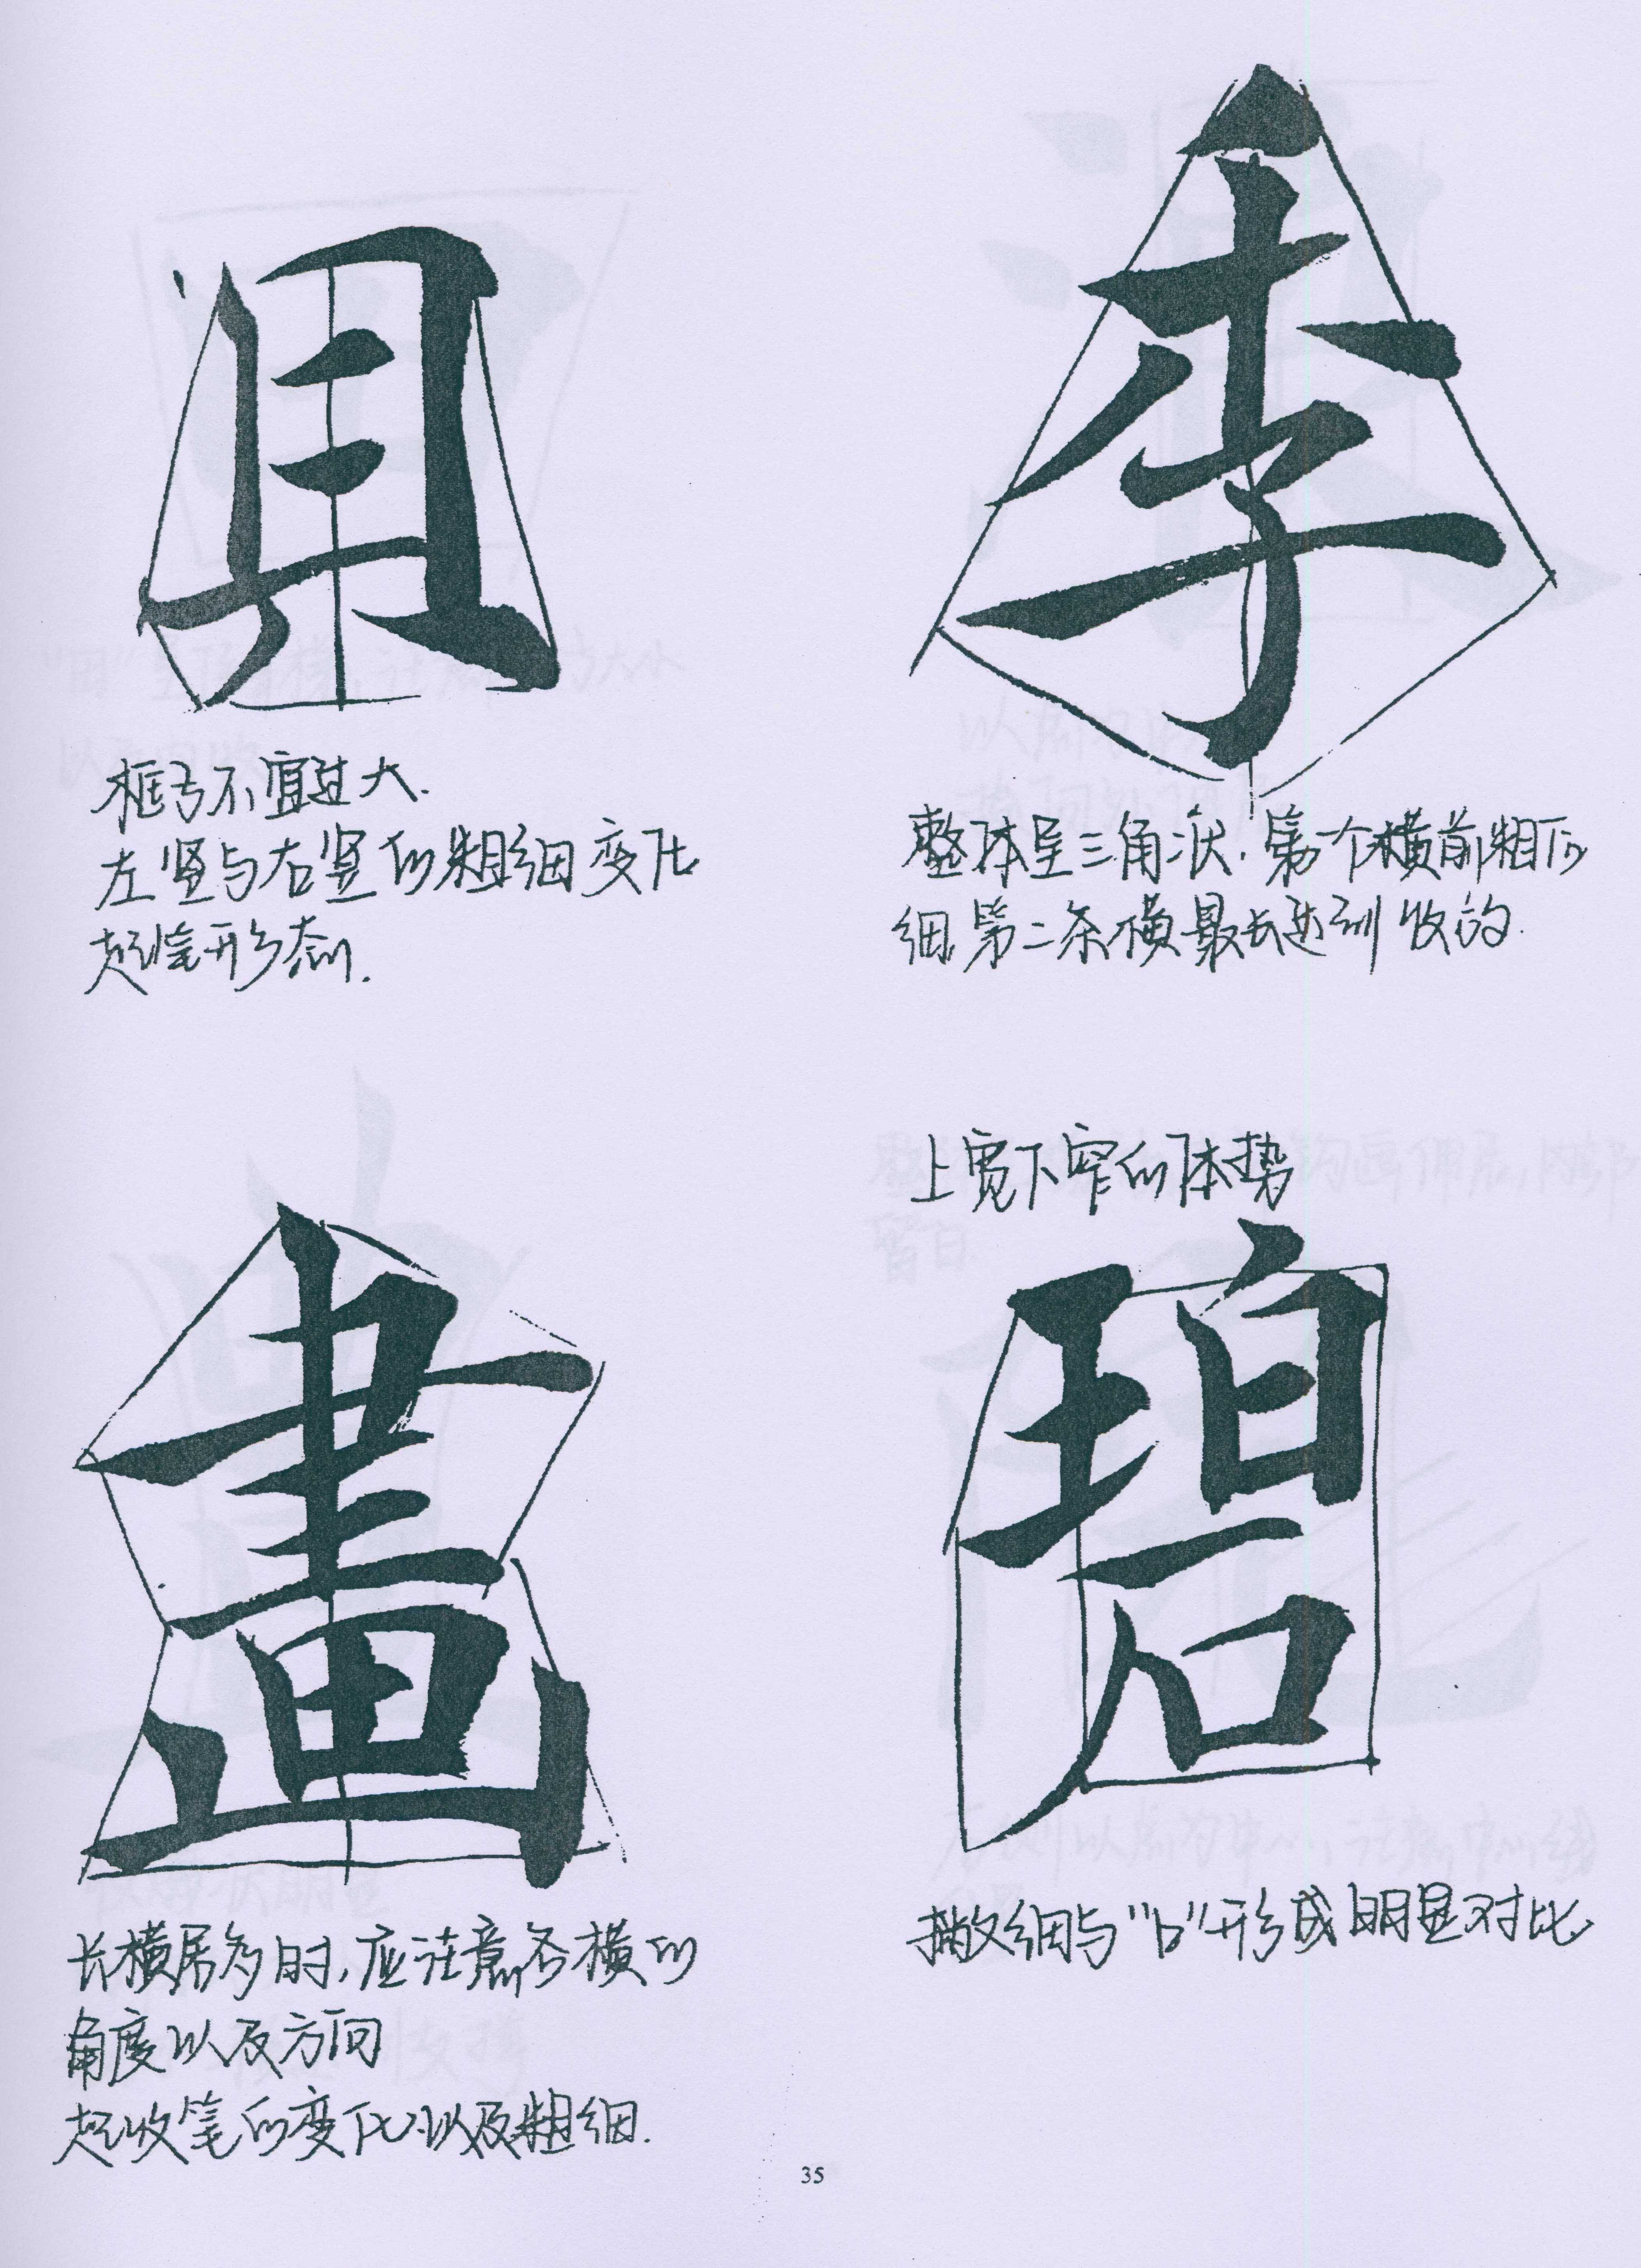 具
框子不宜过大.
左竖与右竖的粗细变化
起笔形态.
季
整体呈三角状.第一个横前粗后
细.第二条横最长达到收的
畫
长横居多时,应注意各横的
角度以及方向
起收笔的变化.以及粗细.
上宽下窄的体势
碧
撇细与“口”形成明显对比
35